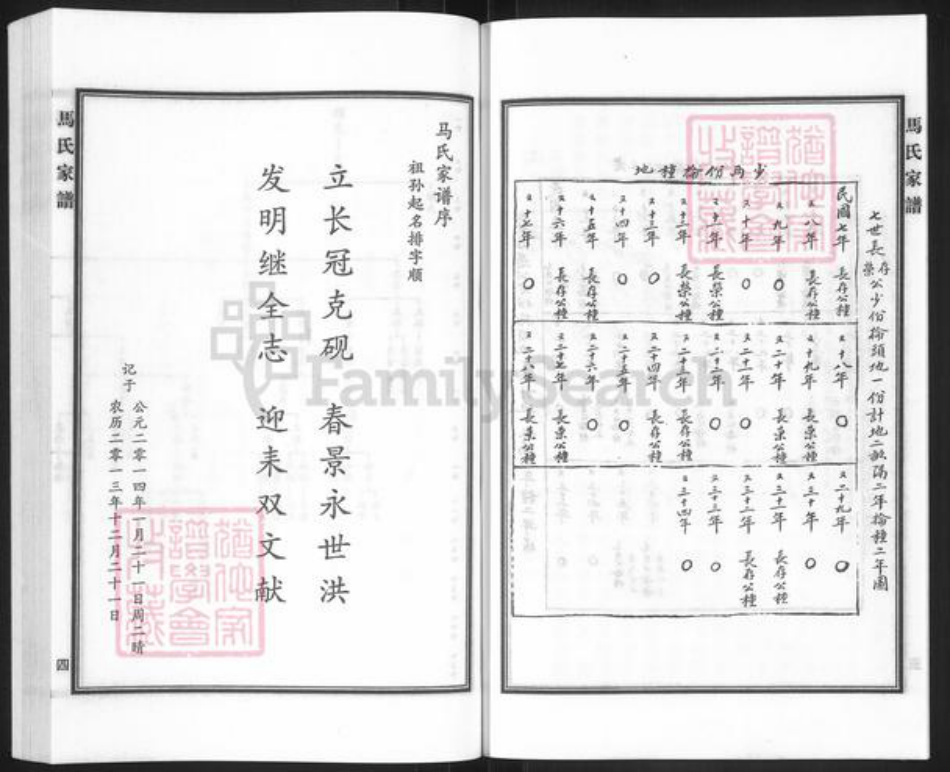 馬氏家譜
七世長存
榮公少份掄種地一份計地二畝隔二年掄種二年圖
少两份掄種地
民國七年 長存公種
又八年 長存公種
又九年 〇
又十年 〇
又十一年 長榮公種
又十二年 長榮公種
又十三年 〇
又十四年 〇
又十五年 長存公種
又十六年 長存公種
又十七年 〇
又十八年 〇
又十九年 長榮公種
又二十年 長榮公種
又二十一年 〇
又二十二年 〇
又二十三年 長存公種
又二十四年 長存公種
又二十五年 〇
又二十六年 〇
又二十七年 長榮公種
又二十八年 長榮公種
又二十九年 〇
又三十年 〇
又三十一年 長存公種
又三十二年 長存公種
又三十三年 〇
又三十四年 〇
马氏家谱序
祖孙起名排字顺
立长冠克砚 春景永世洪
发明继全志 迎来双文献
记于
公元二零一四年一月二十一日周二晴
农历二零一三年十二月二十一日
馬氏家譜
四
FamilySearch